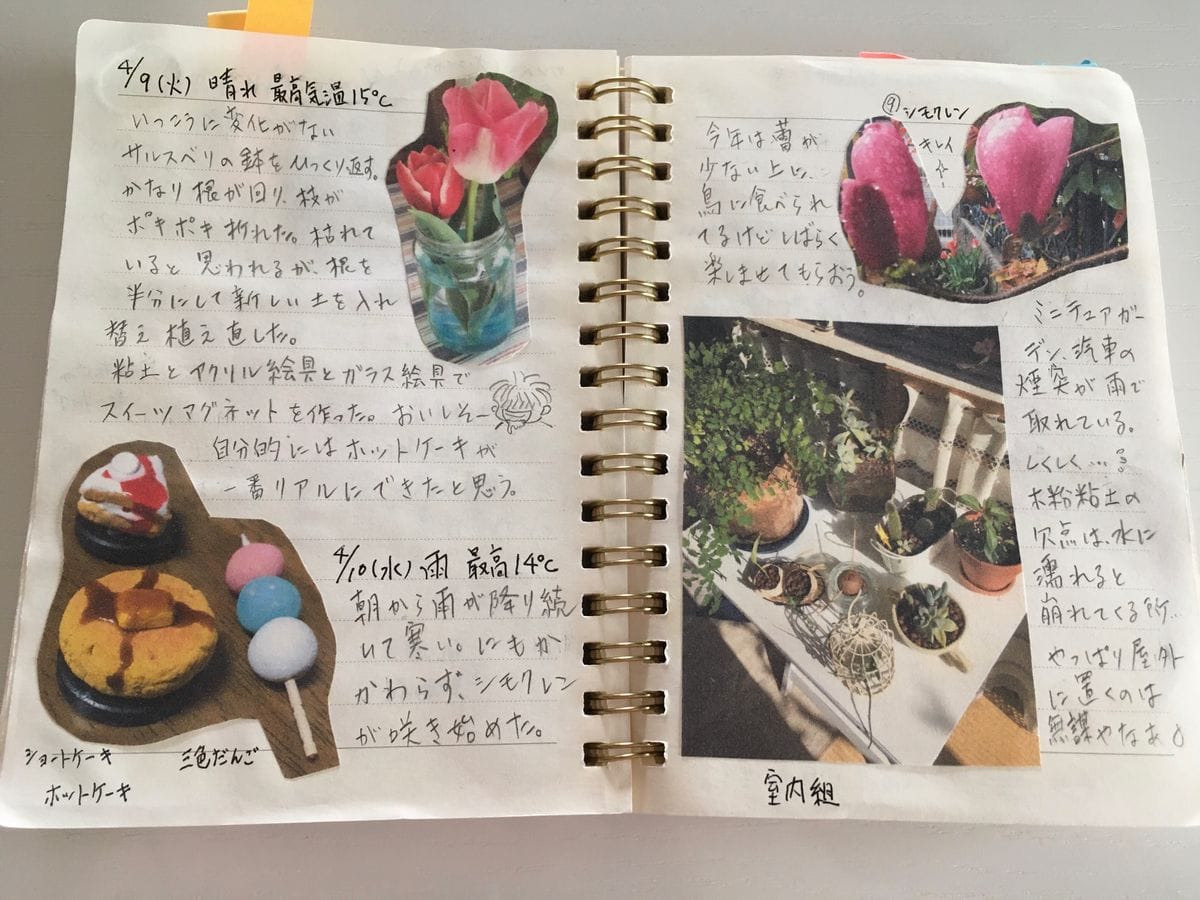 4/9(火) 晴れ 最高気温15℃
いっこうに変化がない
サルスベリの鉢をひっくり返す。
かなり根が回り、枝が
ポキポキ折れた。枯れて
いると思われるが、根を
半分にして新しい土を入れ
替え植え直した。
粘土とアクリル絵具とガラス絵具で
スイーツマグネットを作った。おいしそー
自分的にはホットケーキが
一番リアルにできたと思う。
ショートケーキ
三色だんご
ホットケーキ
4/10(水) 雨 最高14℃
朝から雨が降り続
いて寒い。にもか
かわらず、シモクレン
が咲き始めた。
⑨シモクレン
キレイ
今年は蕾が
少ない上に、
鳥に食べられ
てるけどしばらく
楽しませてもらおう。
ミニチュアガー
デン、汽車の
煙突が雨で
取れている。
しくしく…
木粉粘土の
欠点は、水に
濡れると
崩れてくる所…
やっぱり屋外
に置くのは
無謀やなぁ
室内組